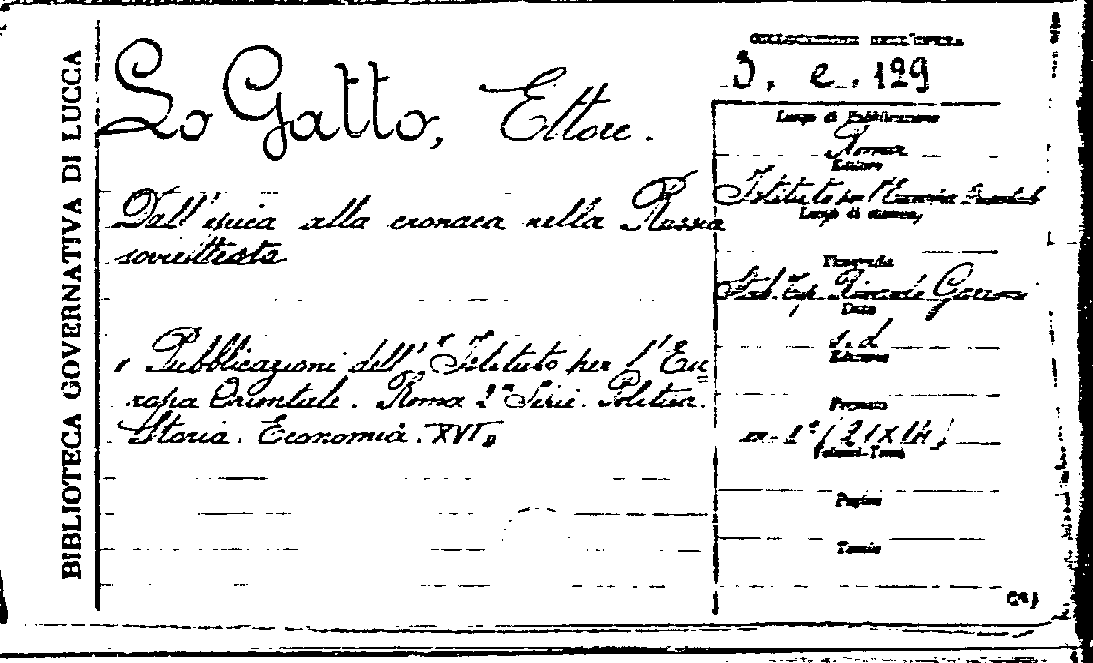 BIBLIOTECA GOVERNATIVA DI LUCCA
COLLOCAZIONE DELL'OPERA
3. e. 129
Lo Gatto, Ettore.
Dall'epica alla cronaca nella Russia
soviettista
"Pubblicazioni dell'"Istituto per l'Eu=
ropa Orientale. Roma 2ª Serie. Politica.
Storia. Economia. XVI"
Luogo di Pubblicazione
Roma
Editore
Istituto per l'Europa Orientale
Luogo di stampa
Tipografia
Stab. Tip. Riccardo Garroni
Data
s. d.
Edizione
Formato
in-8° (21x14)
Volumi-Tomi
Pagine
Tavole